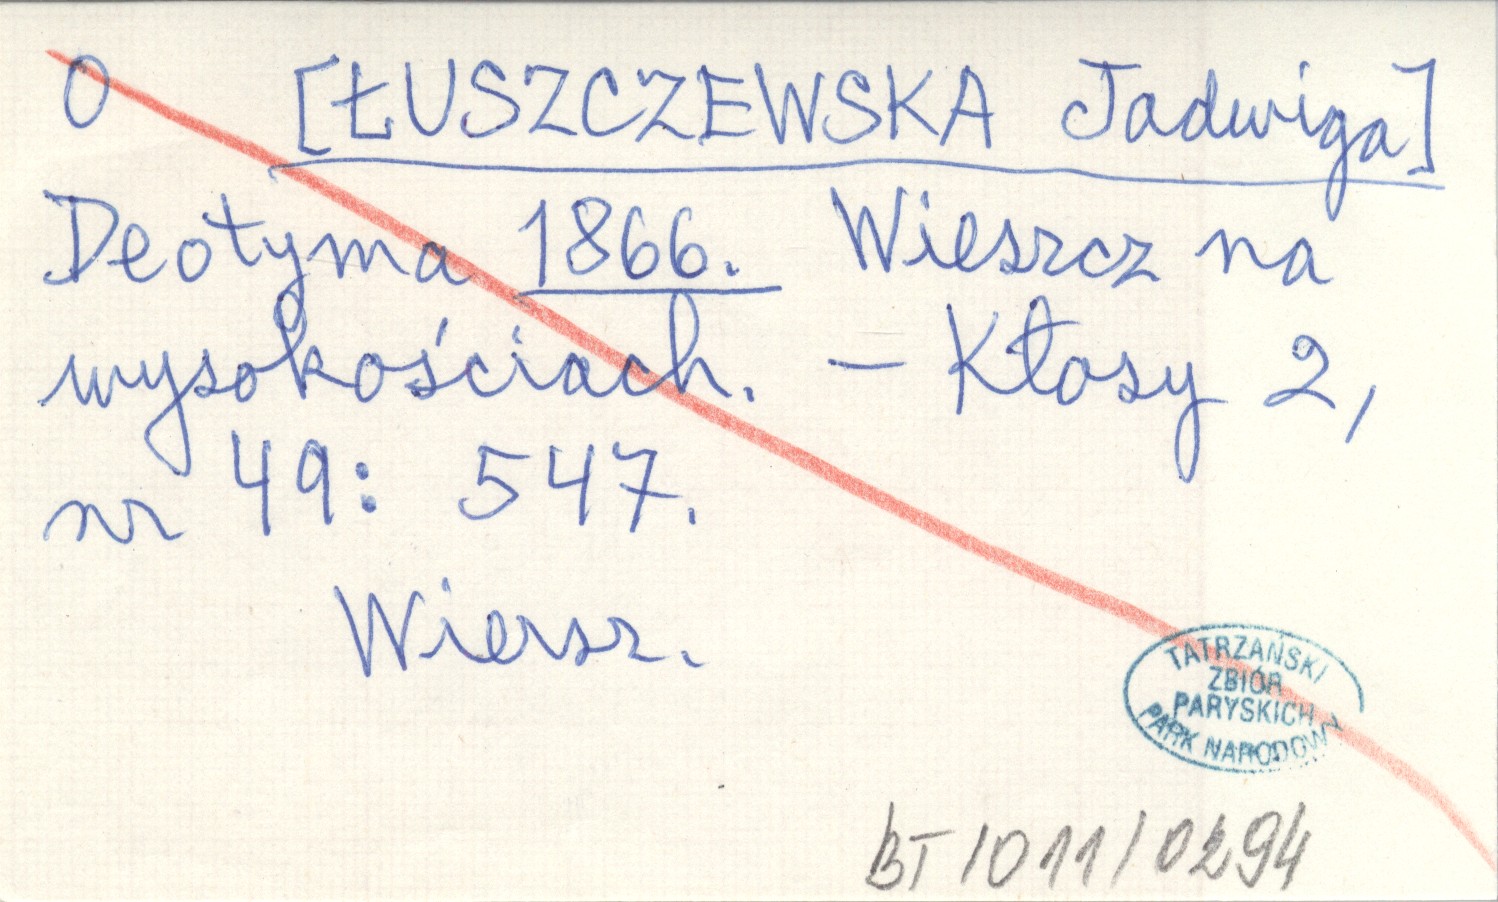 O [ŁUSZCZEWSKA Jadwiga]
Deotyma 1866. Wieszcz na
wysokościach. – Kłosy 2,
nr 49: 547.
Wiersz.
TATRZAŃSKI
ZBIÓR
PARYSKICH
PARK NARODOWY
BT/011/0294